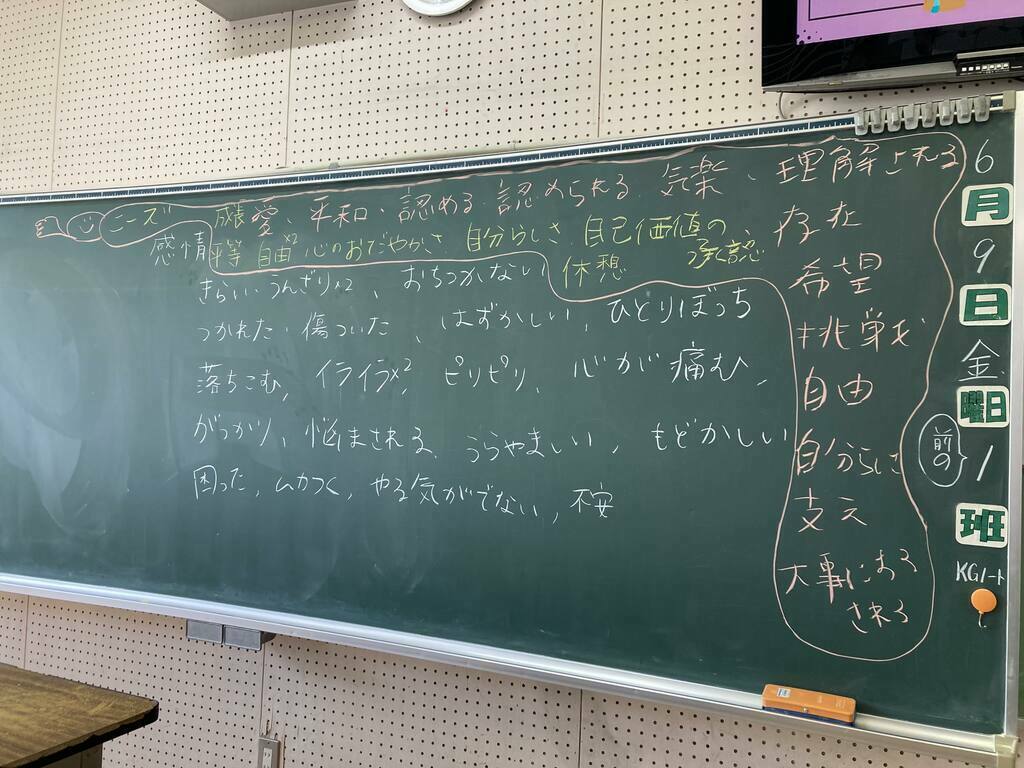 ニーズ 感 愛、平和、認める、認められる、気楽、理解される
感情 平等 自由×2 心のおだやかさ 自分らしさ 自己価値の承認
休憩
存在
希望
挑戦
自由
自分らしさ
支え
大事に
される
きらい、うんざり×2、おちつかない
つかれた、傷ついた、はずかしい、ひとりぼっち
落ちこむ、イライラ×2、ピリピリ、心が痛む、
がっかり、悩まされる、うらやましい、もどかしい
困った、ムカつく、やる気がでない、不安
6
月
9
日
金
曜日
前の
1
班
KGノート